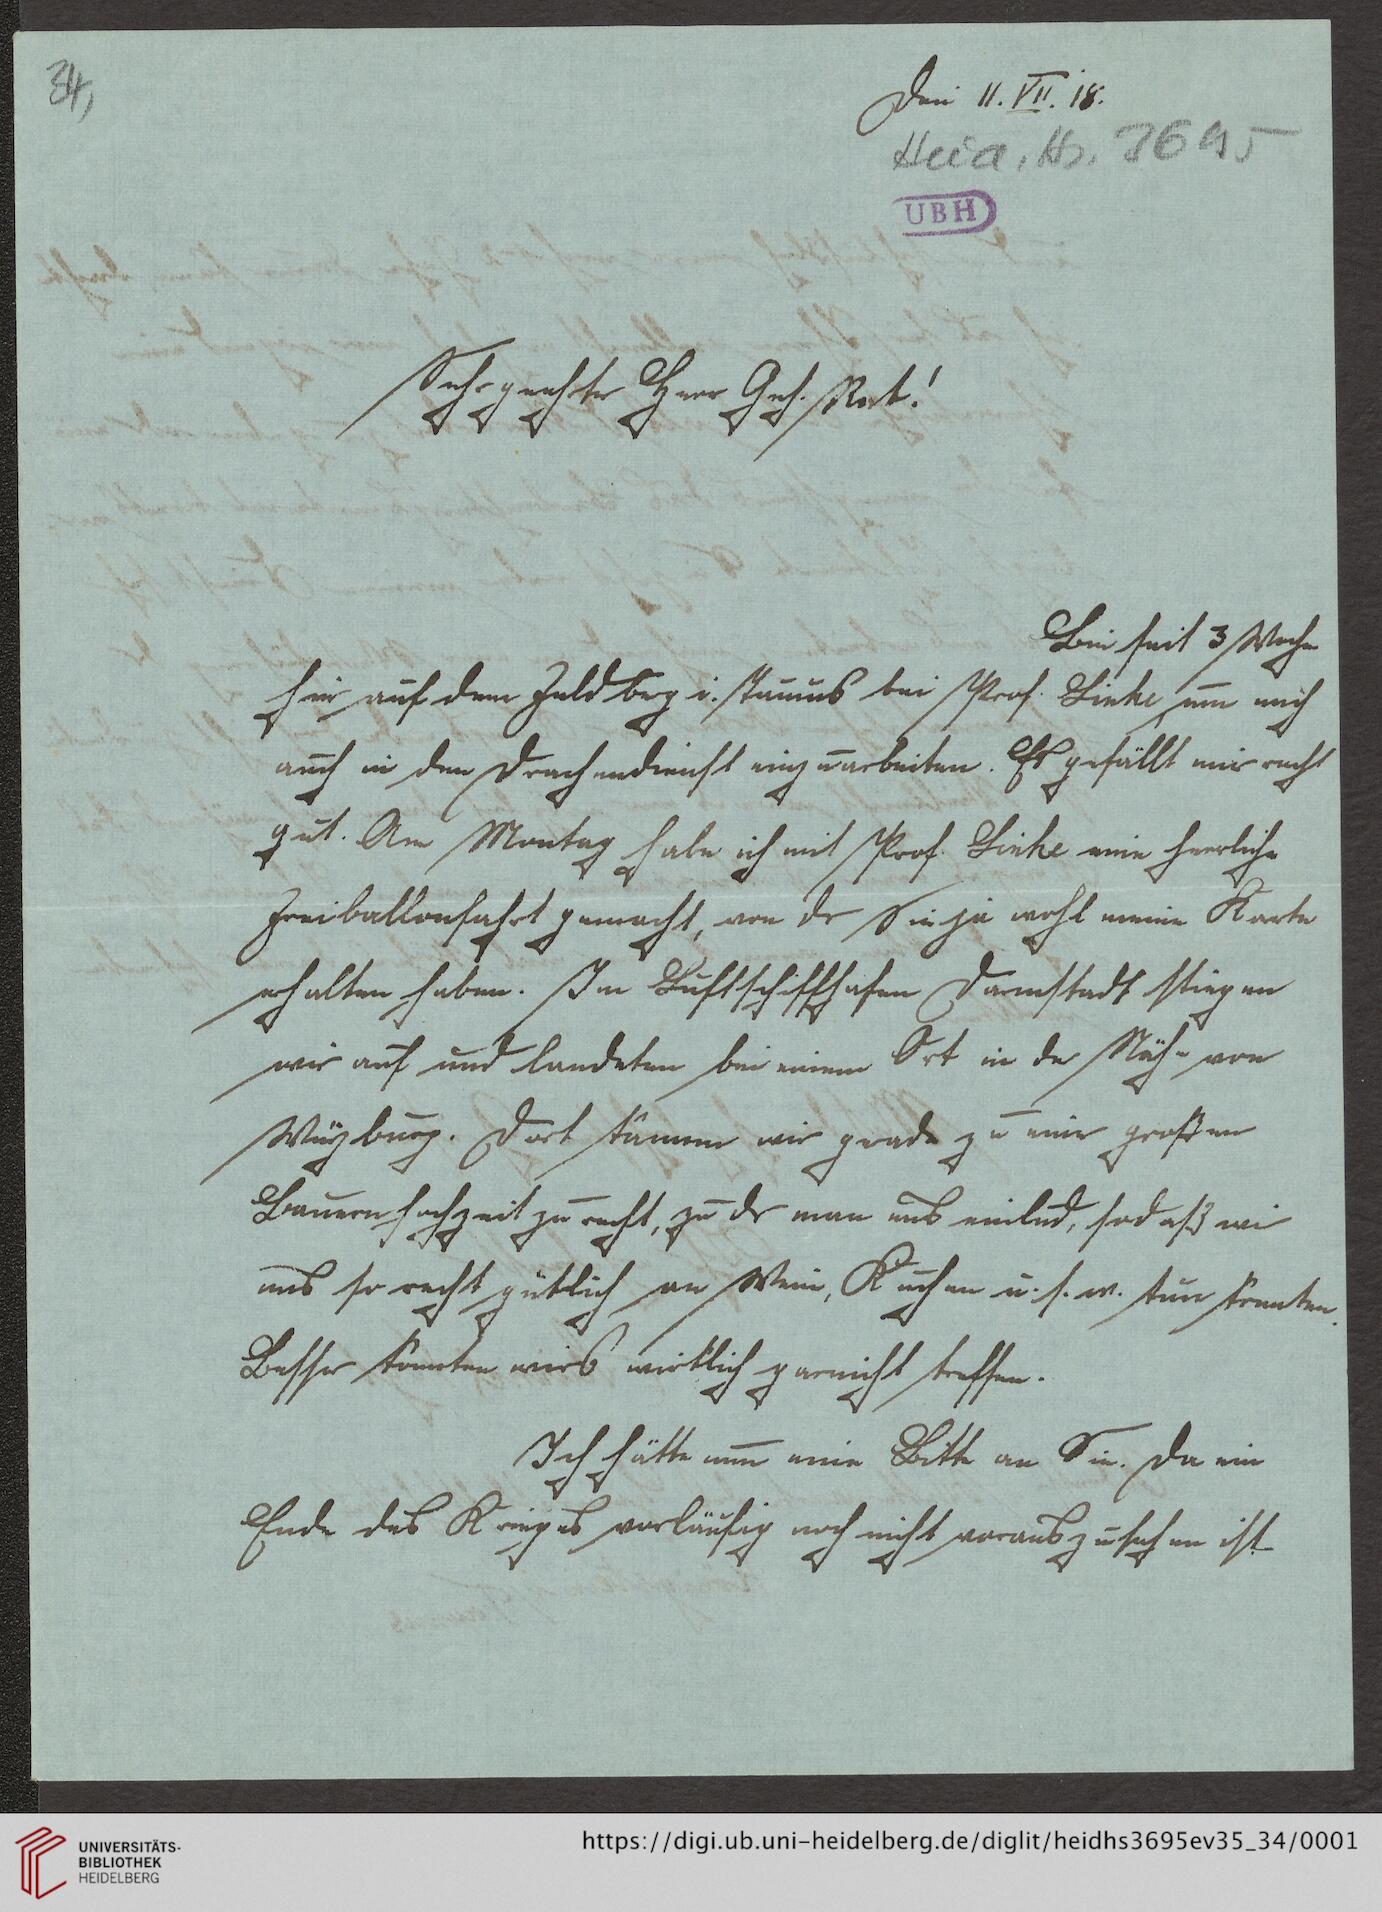 34,
Den 11. VII. 18.
Heid. Hs. 3695
UBH
Sehr geehrter Herr Geh. Rat!
Bin seit 3 Wochen
hier auf dem Feldberg i. Taunus bei Prof. Linke um mich
auch in den Drachendienst einzuarbeiten. Es gefällt mir recht
gut. Am Montag habe ich mit Prof. Linke eine herrliche
Freiballonfahrt gemacht, von der Sie ja wohl meine Karte
erhalten haben. Im Luftschiffhafen Darmstadt stiegen
wir auf und landeten bei einem Ort in der Nähe von
Würzburg. Dort kamen wir gerade zu einer großen
Bauernhochzeit zurecht, zu der man uns einlud, sodaß wir
uns so recht gütlich an Wein, Kuchen u. s. w. tun konnten.
Besser konnten wirs wirklich garnicht treffen.
Ich hätte nun eine Bitte an Sie. Da ein
Ende des Krieges vorläufig noch nicht vorauszusehen ist
UNIVERSITÄTS-
BIBLIOTHEK
HEIDELBERG
https://digi.ub.uni-heidelberg.de/diglit/heidhs3695ev35_34/0001